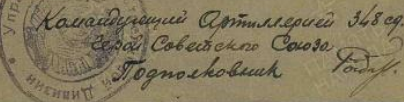 Командующий Артиллерией 348 сд.
Герой Советского Союза
Подполковник